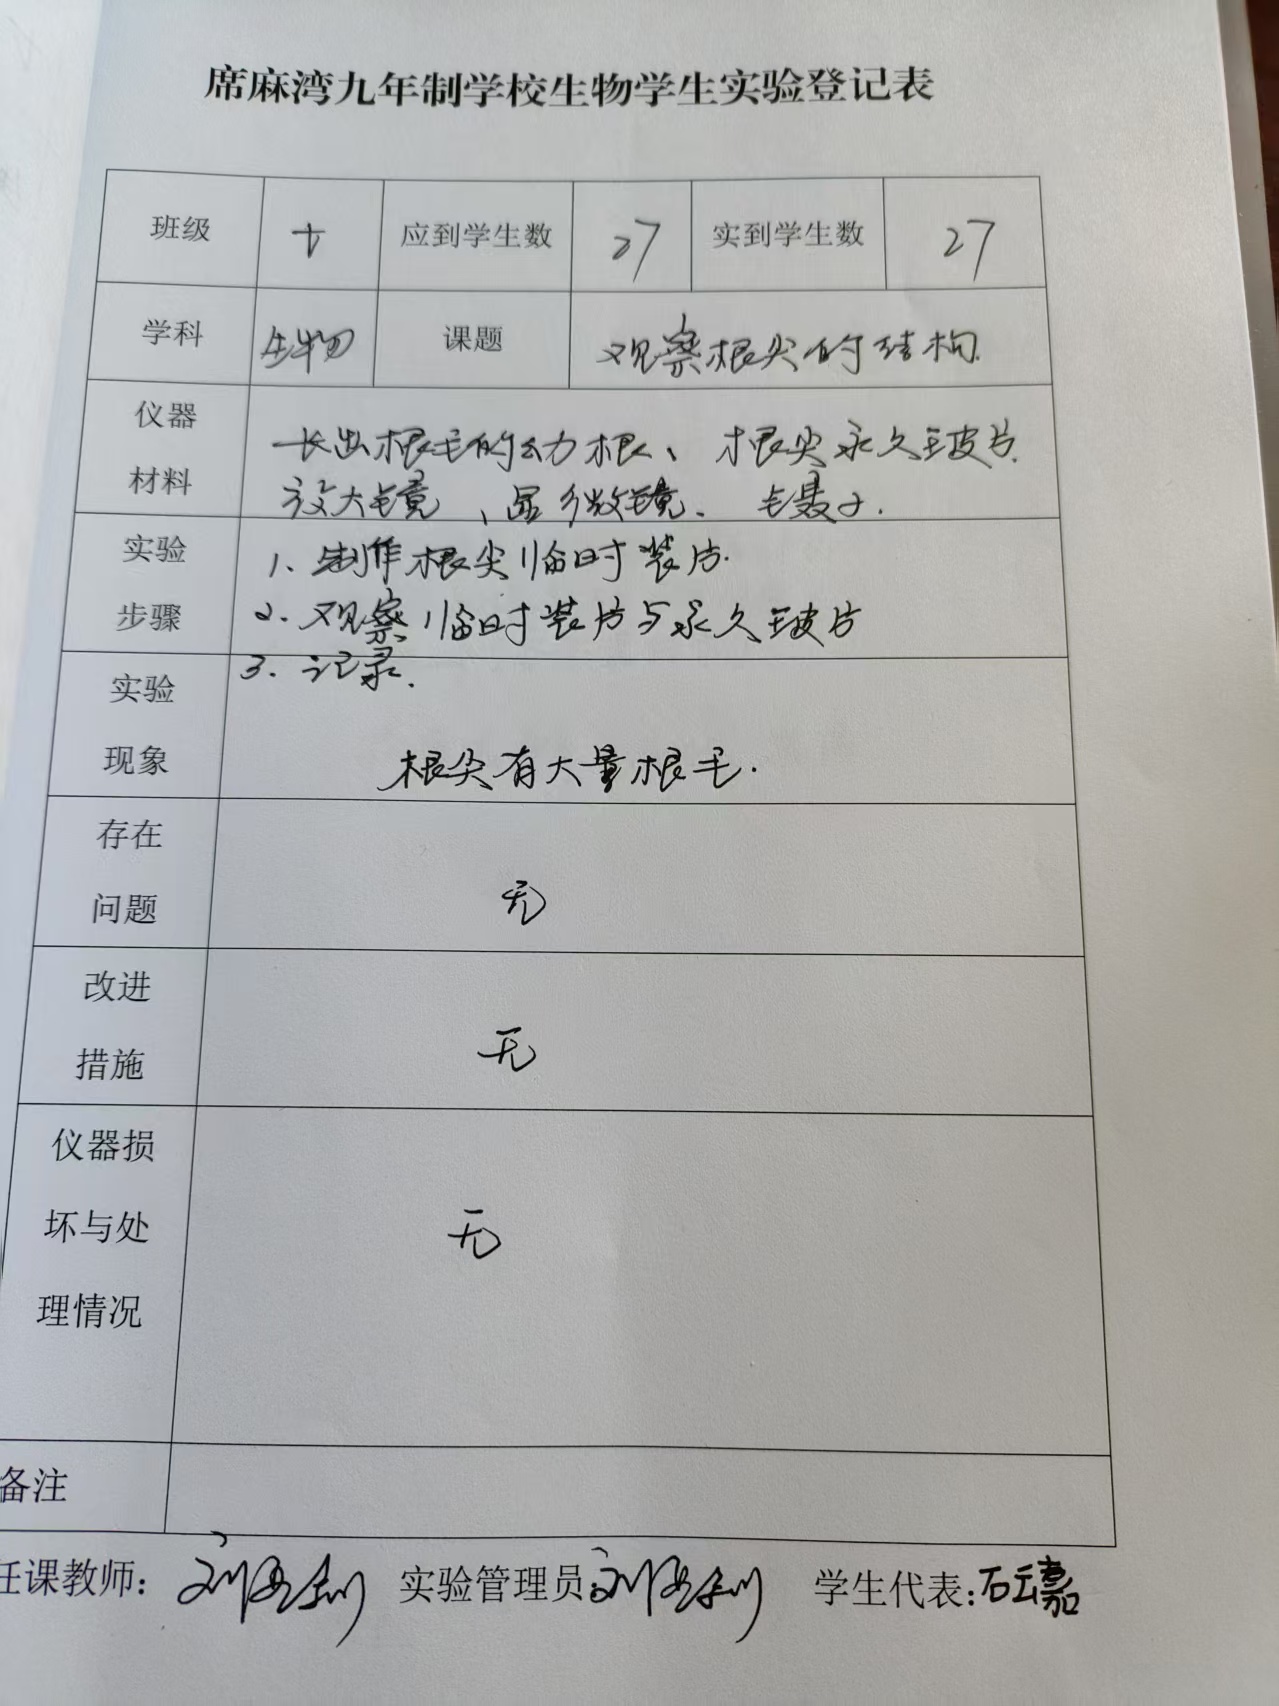 席麻湾九年制学校生物学生实验登记表
班级 七 应到学生数 27 实到学生数 27
学科 生物 课题 观察根尖的结构.
仪器
材料
长出根毛的幼根、 根尖永久玻片.
放大镜、显微镜、 镊子.
实验
步骤
1、制作根尖临时装片.
2、观察临时装片与永久玻片
3、记录.
实验
现象
根尖有大量根毛.
存在
问题
无
改进
措施
无
仪器损
坏与处
理情况
无
备注
任课教师: 实验管理员: 学生代表:石云嘉